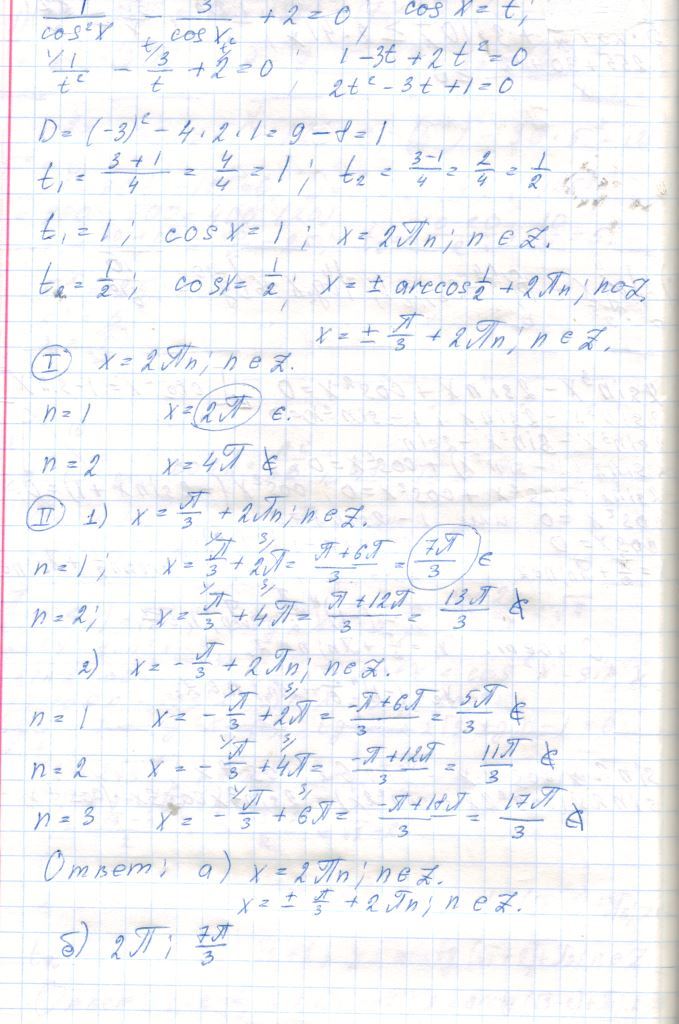 1/cos²x - 3/cosx + 2 = 0 cos x = t;
1/t² - 3/t + 2 = 0; 1 - 3t + 2t² = 0
2t² - 3t + 1 = 0
D = (-3)² - 4·2·1 = 9 - 8 = 1
t₁ = (3+1)/4 = 4/4 = 1; t₂ = (3-1)/4 = 2/4 = 1/2
t₁ = 1; cos x = 1; x = 2πn; n ∈ Z.
t₂ = 1/2; cosx = 1/2; x = ± arccos 1/2 + 2πn; n∈Z.
x = ± π/3 + 2πn; n ∈ Z.
I x = 2πn; n ∈ Z.
n = 1 x = 2π ∈.
n = 2 x = 4π ∉
II 1) x = π/3 + 2πn; n ∈ Z.
n = 1; x = π/3 + 2π = (π+6π)/3 = 7π/3 ∈
n = 2; x = π/3 + 4π = (π+12π)/3 = 13π/3 ∉
2) x = -π/3 + 2πn; n ∈ Z.
n = 1 x = -π/3 + 2π = (-π+6π)/3 = 5π/3 ∉
n = 2 x = -π/3 + 4π = (-π+12π)/3 = 11π/3 ∉
n = 3 x = -π/3 + 6π = (-π+18π)/3 = 17π/3 ∉
Ответ: а) x = 2πn; n ∈ Z.
x = ± π/3 + 2πn; n ∈ Z.
б) 2π; 7π/3